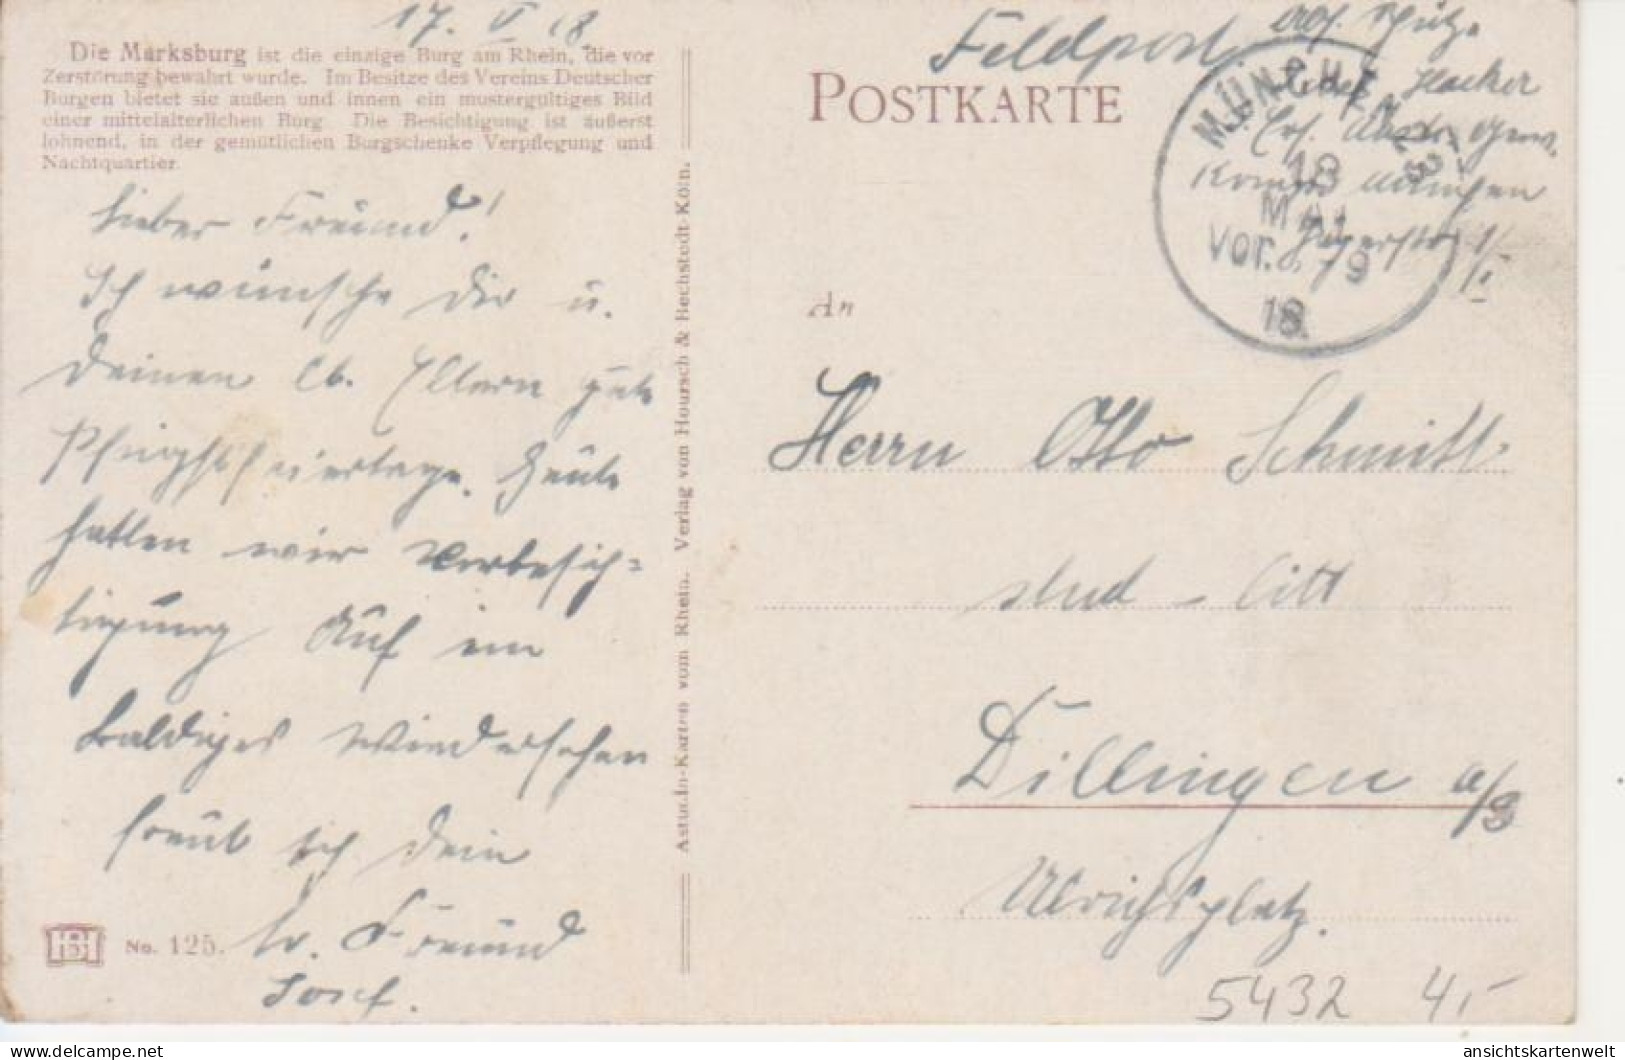 17. V 18.
Die Marksburg ist die einzige Burg am Rhein, die vor
Zerstörung bewahrt wurde. Im Besitze des Vereins Deutscher
Burgen bietet sie außen und innen ein mustergültiges Bild
einer mittelalterlichen Burg. Die Besichtigung ist äußerst
lohnend, in der gemütlichen Burgschenke Verpflegung und
Nachtquartier.
Lieber Freund!
Ich wünsche Dir u.
Deinen lb. Eltern gute
Pfingstfeiertage. Heute
hatten wir Vorbesich-
tigung. Auf ein
baldiges Wiedersehen
freut sich Dein
tr. Freund
Josef.
No. 125.
Astudin-Karten vom Rhein. Verlag von Hoursch & Bechstedt-Köln.
Feldpost.
POSTKARTE
Hacker
München
MÜNCHEN
18
MAI
Vor. 8-9
18.
An
Herrn Otto Schmitt
stud
Dillingen a/D
Ulrichsplatz.
5432 4,-
© the-collector
ansichtskartenwelt